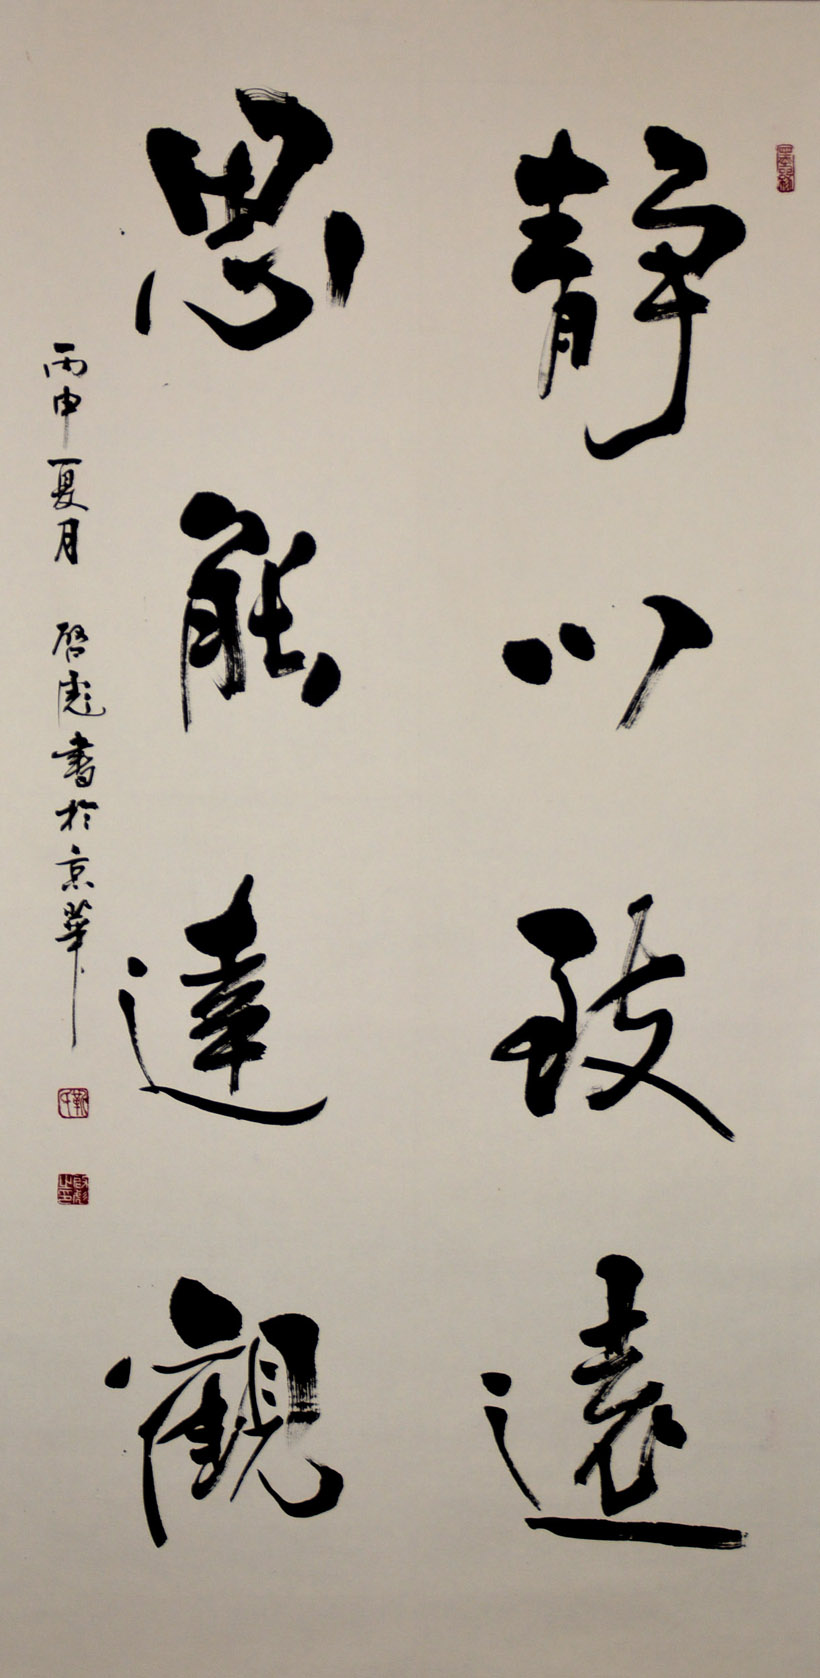 静以致遠
思能達觀
丙申夏月 啓彪書於京華